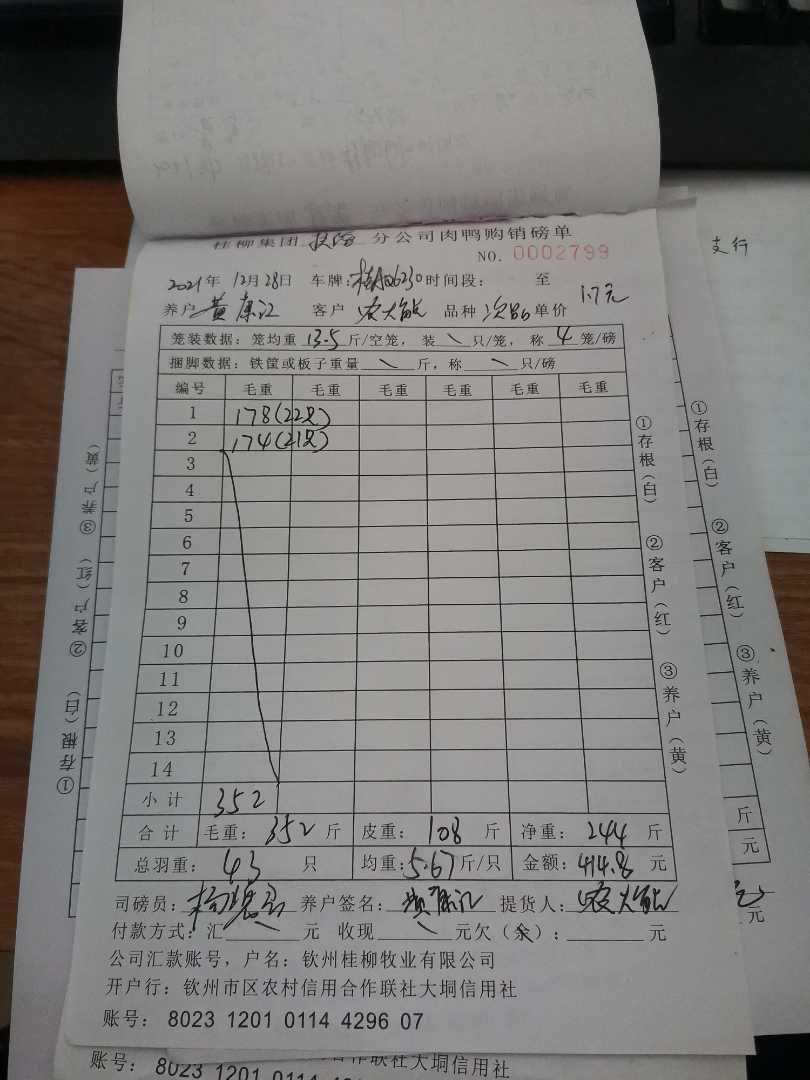 桂柳集团 钦州 分公司肉鸭购销磅单
NO. 0002799
2021年 12月 28日 车牌: 时间段: 至
养户 黄康江 客户 农火能 品种 次品 单价 1.7元
笼装数据: 笼均重 13.5 斤/空笼, 装 \ 只/笼, 称 4 笼/磅
捆脚数据: 铁筐或板子重量 \ 斤, 称 \ 只/磅
编号 毛重 毛重 毛重 毛重 毛重 毛重
1 178(22只)
2 174(21只)
3
4
5
6
7
8
9
10
11
12
13
14
小计 352
合计 毛重: 352 斤 皮重: 108 斤 净重: 244 斤
总羽重: 43 只 均重: 5.67 斤/只 金额: 414.8 元
司磅员: 养户签名: 黄康江 提货人: 农火能
付款方式: 汇 \ 元 收现 \ 元欠(余): 元
公司汇款账号, 户名: 钦州桂柳牧业有限公司
开户行: 钦州市区农村信用合作联社大垌信用社
账号: 8023 1201 0114 4296 07
①存根(白) ②客户(红) ③养户(黄)
①存根(白) ②客户(红) ③养户(黄)
①存根(白) ②客户(红) ③养户(黄)
支行
斤
元
元
作联社大垌信用社
账号: 8023 1201 0114